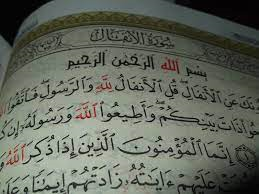 سُورَةُ الأَنفَالِ
بِسْمِ اللَّهِ الرَّحْمَٰنِ الرَّحِيمِ
عَنِ الْأَنفَالِ قُلِ الْأَنفَالُ لِلَّهِ وَالرَّسُولِ فَاتَّقُوا
ذَاتَ بَيْنِكُمْ وَأَطِيعُوا اللَّهَ وَرَسُولَهُ إِن
إِنَّمَا الْمُؤْمِنُونَ الَّذِينَ إِذَا ذُكِرَ اللَّهُ
ءَايَٰتُهُ زَادَتْهُمْ إِيمَٰنًا